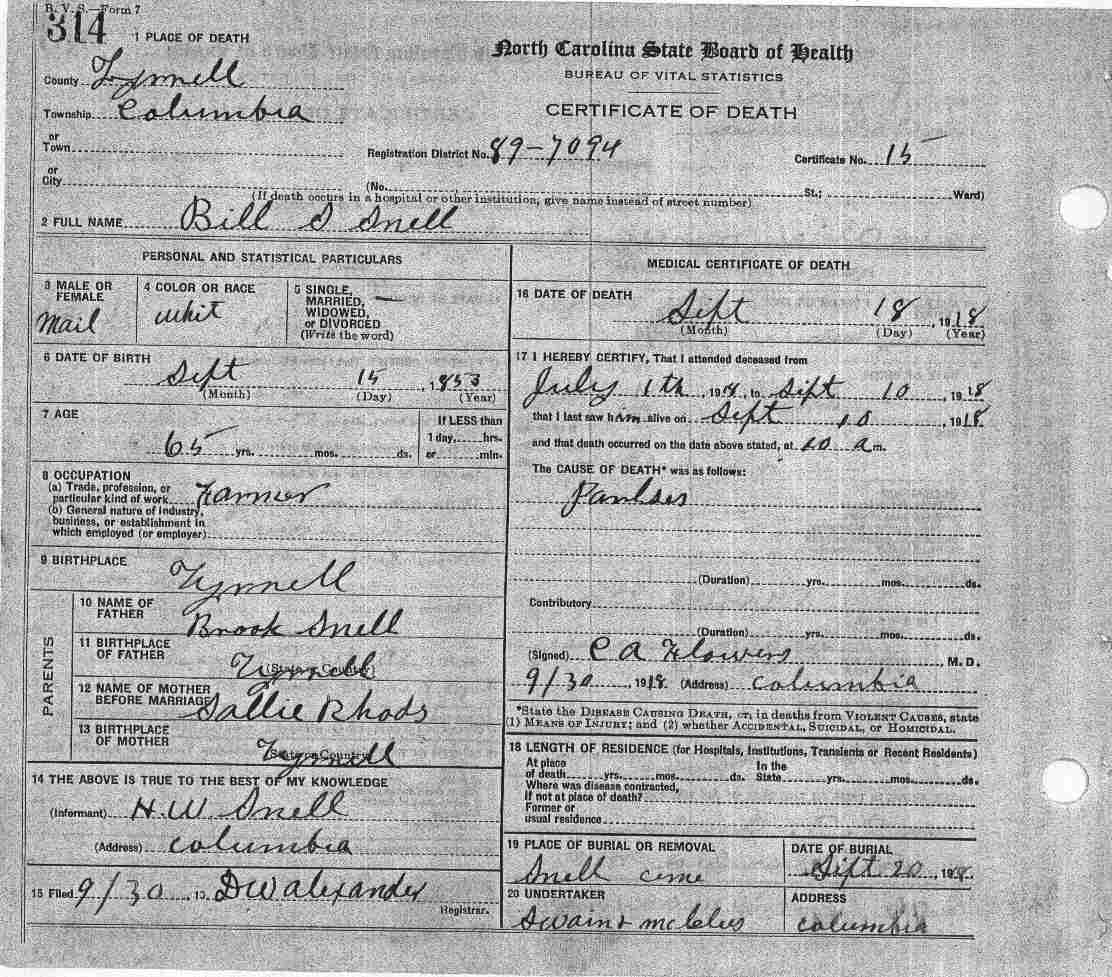 B. V. S.—Form 7
314
1 PLACE OF DEATH
North Carolina State Board of Health
BUREAU OF VITAL STATISTICS
CERTIFICATE OF DEATH
County Tyrrell
Township Columbia
or Town
Registration District No. 89-7094
Certificate No. 15
or City
(No. St.; Ward)
(If death occurs in a hospital or other institution, give name instead of street number)
2 FULL NAME Bill S Snell
PERSONAL AND STATISTICAL PARTICULARS
3 MALE OR FEMALE
Mail
4 COLOR OR RACE
whit
5 SINGLE, MARRIED, WIDOWED, or DIVORCED (Write the word) —
6 DATE OF BIRTH
Sept 15, 1853
(Month) (Day) (Year)
7 AGE
65 yrs. mos. ds.
If LESS than 1 day, hrs. or min.
8 OCCUPATION
(a) Trade, profession, or particular kind of work Farmer
(b) General nature of industry, business, or establishment in which employed (or employer)
9 BIRTHPLACE
Tyrrell
PARENTS
10 NAME OF FATHER
Brook Snell
11 BIRTHPLACE OF FATHER
(State or Country)
Tyrrell
12 NAME OF MOTHER BEFORE MARRIAGE
Sallie Rhods
13 BIRTHPLACE OF MOTHER
(State or Country)
Tyrrell
14 THE ABOVE IS TRUE TO THE BEST OF MY KNOWLEDGE
(Informant) H. W Snell
(Address) Columbia
15 Filed 9/30, 19 D W Alexander
Registrar.
MEDICAL CERTIFICATE OF DEATH
16 DATE OF DEATH
Sept 18, 1918
(Month) (Day) (Year)
17 I HEREBY CERTIFY, That I attended deceased from
July 1th, 1918, to Sept 10, 1918
that I last saw him alive on Sept 10, 1918
and that death occurred on the date above stated, at 10 a m.
The CAUSE OF DEATH* was as follows:
(Duration) yrs. mos. ds.
Contributory
(Duration) yrs. mos. ds.
(Signed) C A Flowers, M. D.
9/30, 1918. (Address) Columbia
*State the DISEASE CAUSING DEATH, or, in deaths from VIOLENT CAUSES, state
(1) MEANS OF INJURY; and (2) whether ACCIDENTAL, SUICIDAL, OR HOMICIDAL.
18 LENGTH OF RESIDENCE (for Hospitals, Institutions, Transients or Recent Residents)
At place of death yrs. mos. ds. In the State yrs. mos. ds.
Where was disease contracted, if not at place of death?
Former or usual residence
19 PLACE OF BURIAL OR REMOVAL
Snell ceme
DATE OF BURIAL
Sept 20, 1918.
20 UNDERTAKER
Swain &
ADDRESS
Columbia